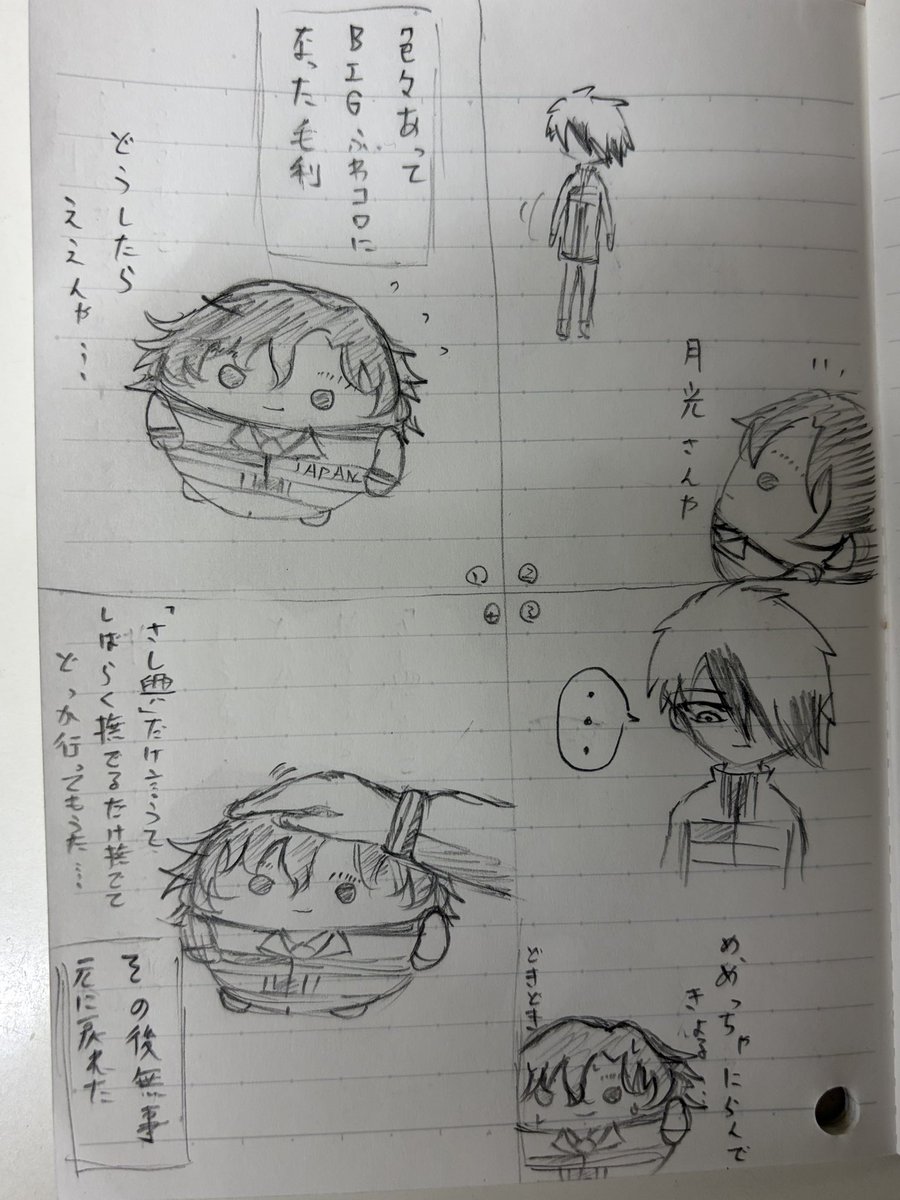 色々あって
BIGふわコロに
なった毛利
どうしたら
ええんや…
JAPAN
①
②
月光さんや
③
・・・
め、めっちゃにらんで
きよる…
どきどき
④
「さし興」だけ言うて
しばらく撫でるだけ撫でて
どっか行ってもうた…
その後無事
元に戻れた